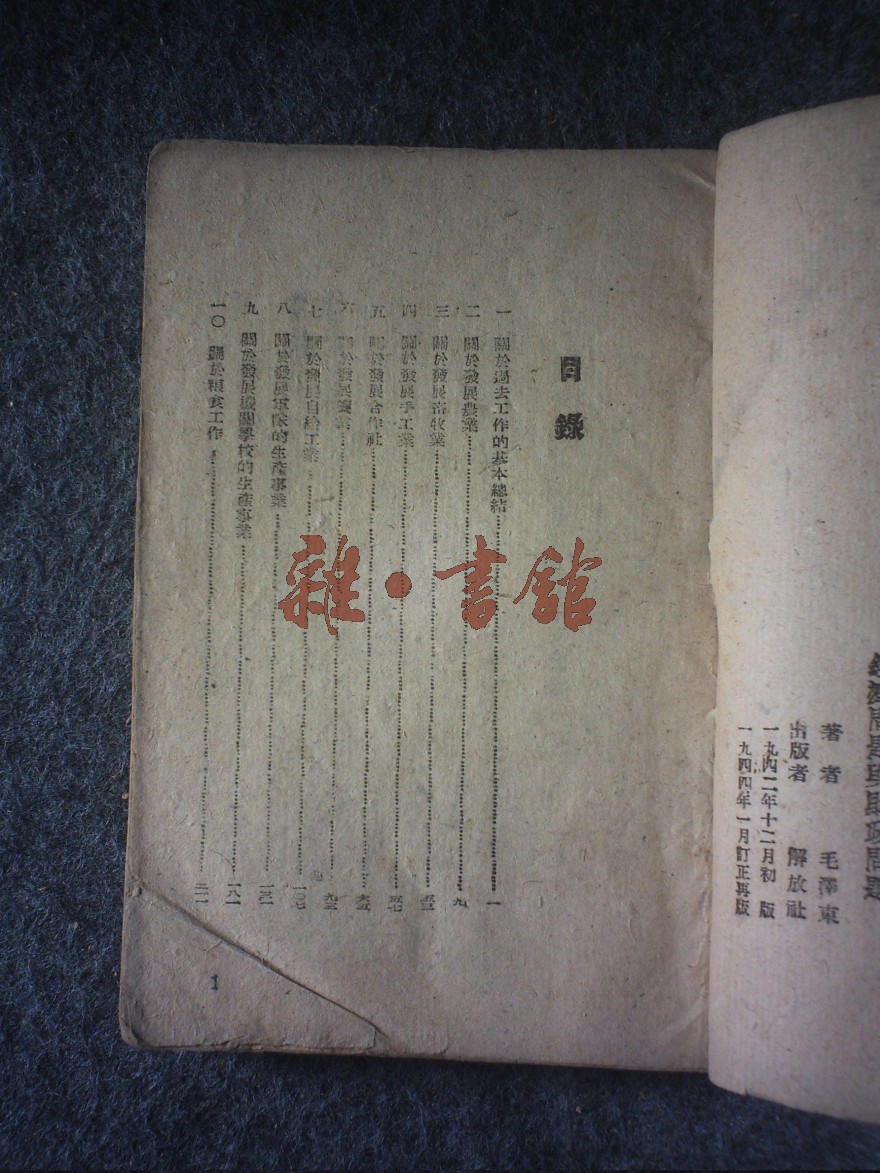 經濟問題與財政問題
著者 毛澤東
出版者 解放社
一九四二年十二月初版
一九四四年一月訂正再版
目錄
一 關於過去工作的基本總結……一
二 關於發展農業……九
三 關於發展畜牧業……五三
四 關於發展手工業……五七
五 關於發展合作社……六五
六 關於發展鹽業……九三
七 關於發展自給工業……一〇七
八 關於發展軍隊的生產事業……一三一
九 關於發展機關學校的生產事業……一八一
一〇 關於糧食工作……二一一
1
雜·書館